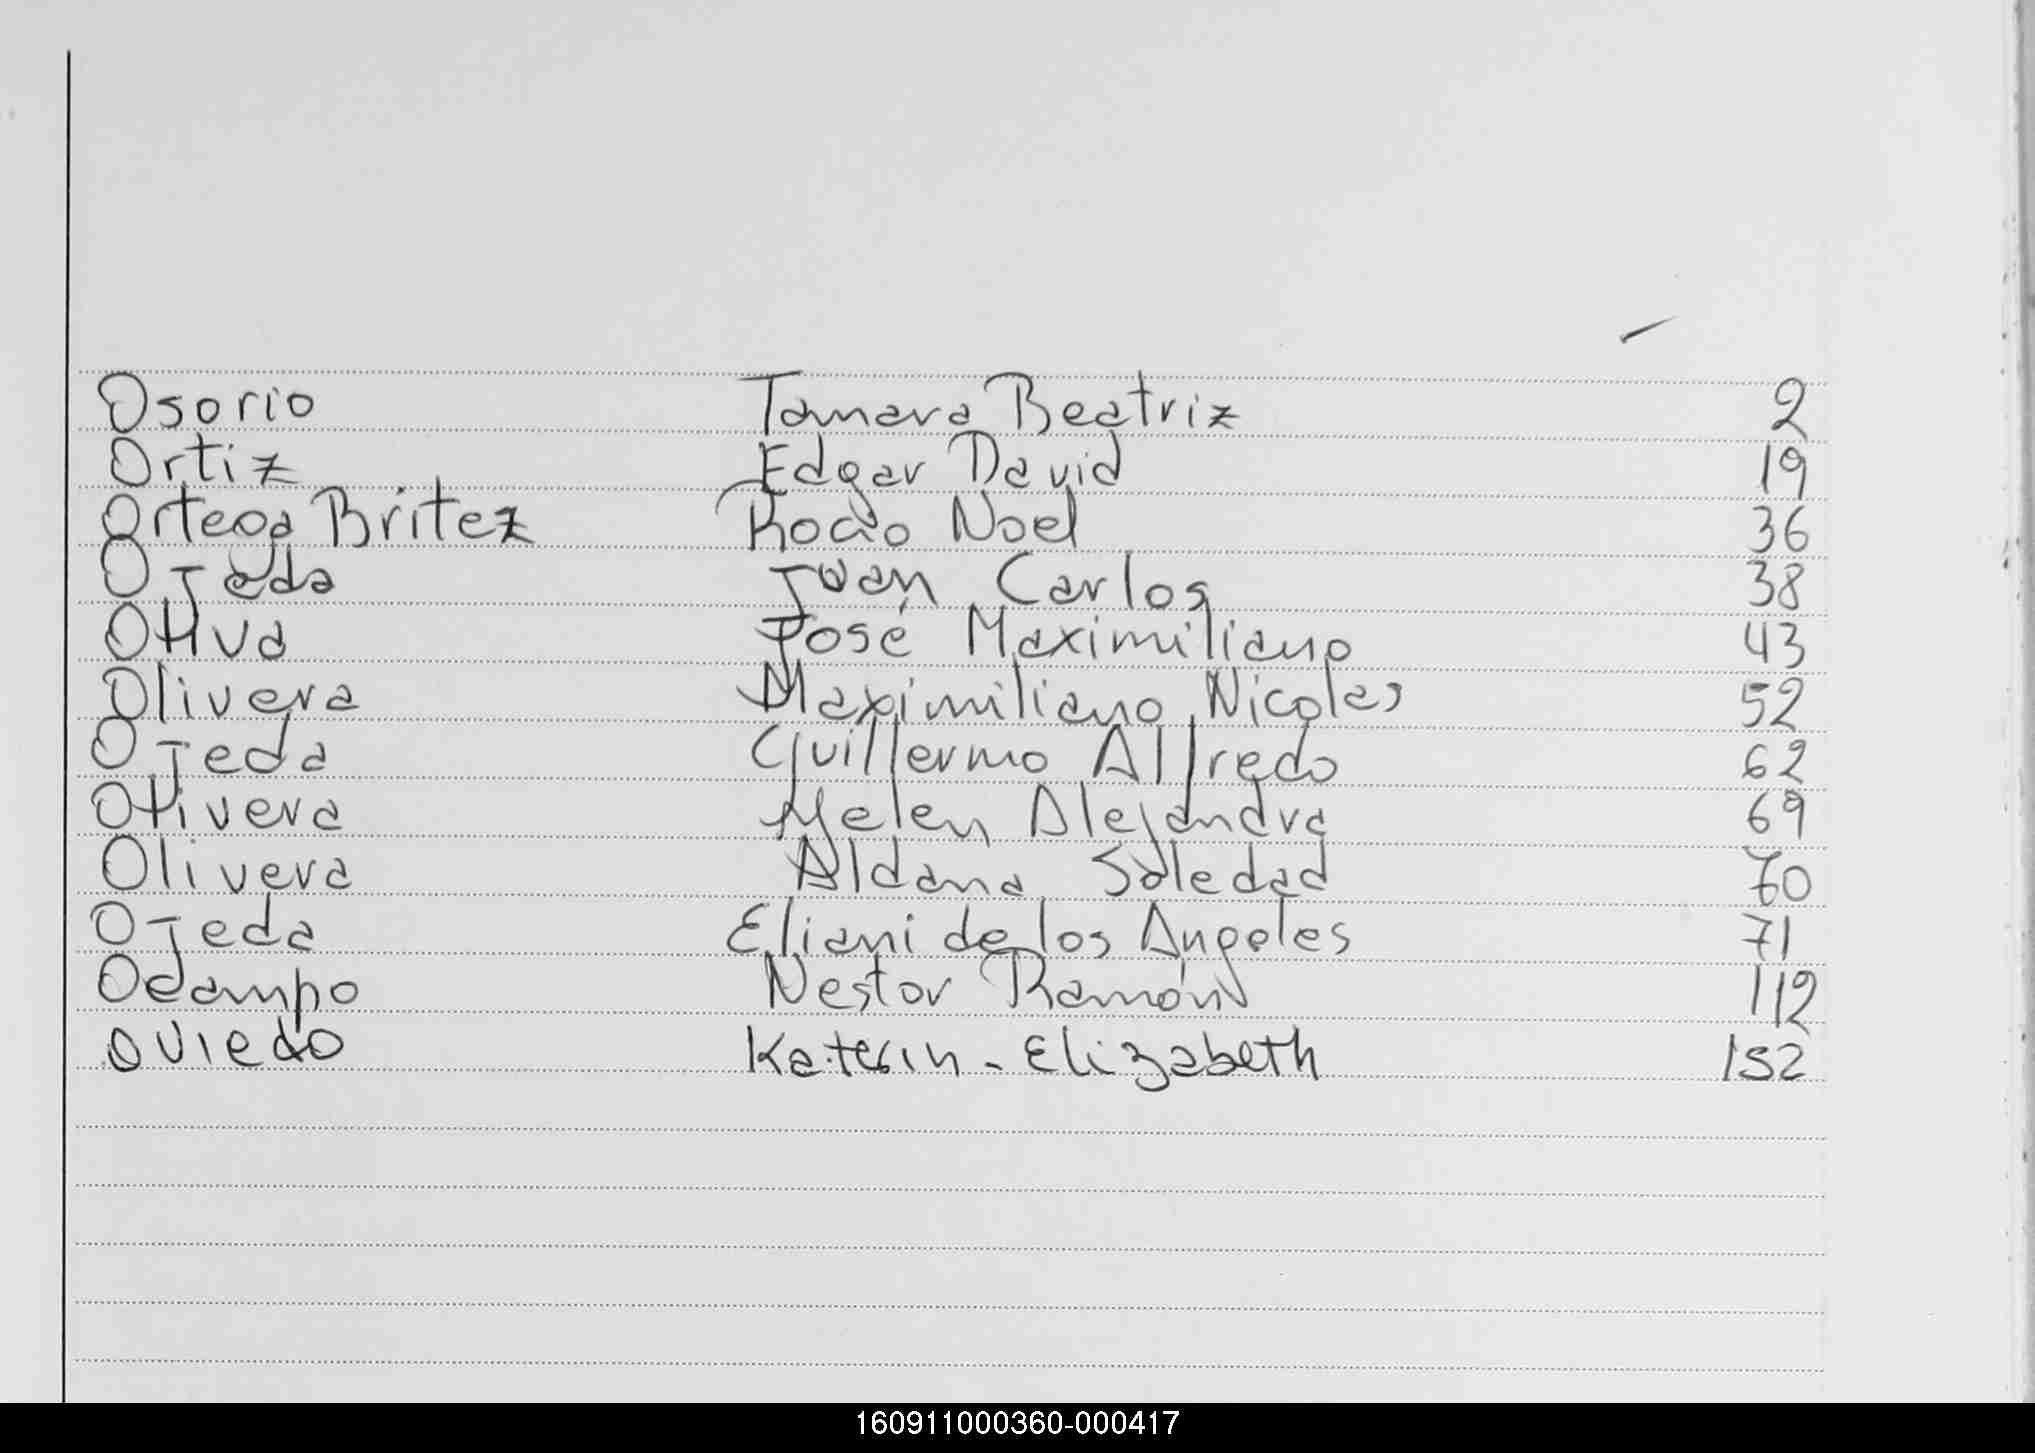 Osorio Tamara Beatriz 2
Ortiz Edgar David 19
Ortega Britez Rocio Noel 36
Ojeda Juan Carlos 38
Oliva José Maximiliano 43
Olivera Maximiliano Nicolas 52
Ojeda Guillermo Alfredo 62
Olivera Melen Alejandra 69
Olivera Aldana Soledad 70
Ojeda Eliani de los Angeles 71
Ocampo Nestor Ramón 112
Oviedo Katerin - Elizabeth 152
160911000360-000417